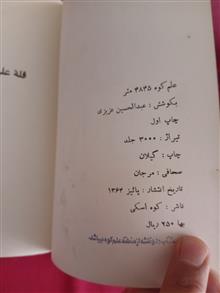 قلة علم
علم کوه ۴۸۴۵ متر
بکوشش: عبدالحسین عزیزی
چاپ اول
تیراژ: ۳۰۰۰ جلد
چاپ: گیلان
صحافی: مرجان
تاریخ انتشار: پائیز ۱۳۶۴
ناشر: کوه اسکی
بها ۲۵۰ ریال